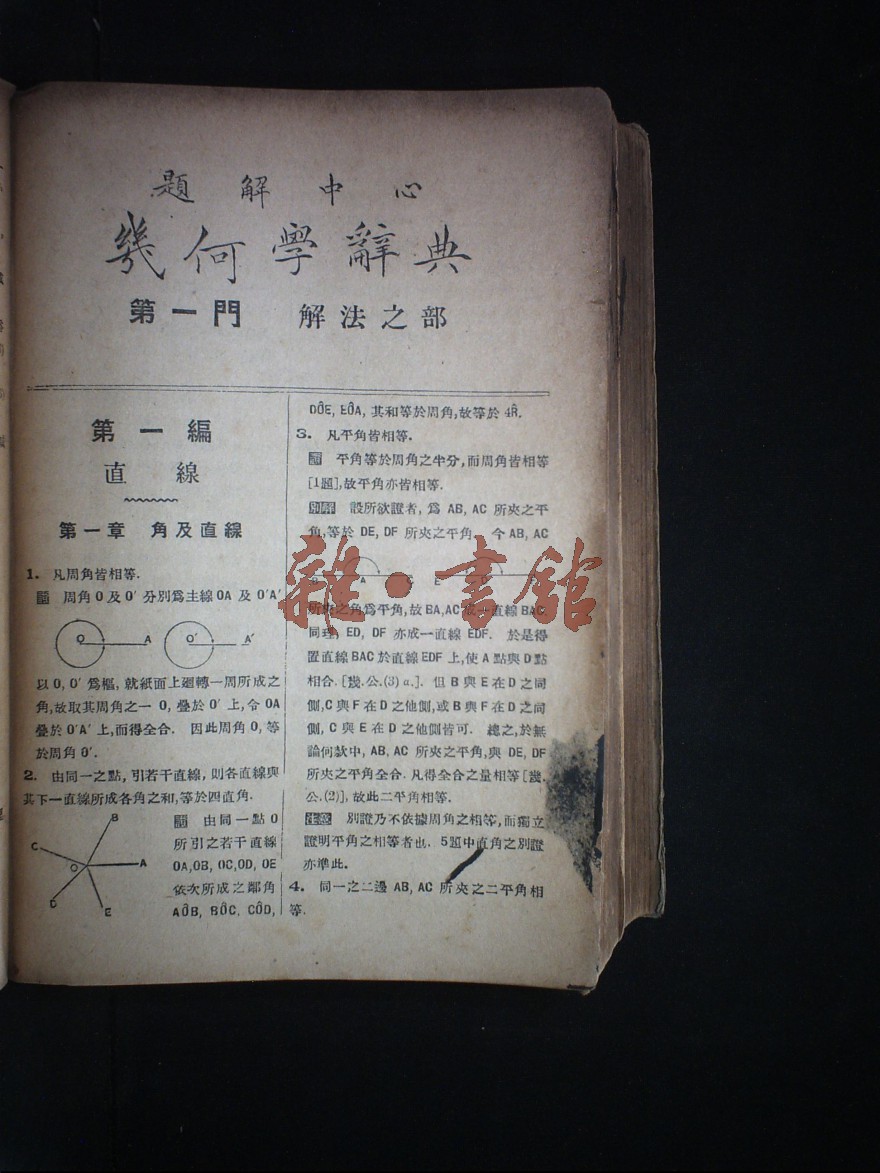 題解中心
幾何學辭典
第一門 解法之部
第一編
直線
第一章 角及直線
1. 凡周角皆相等.
證 周角 O 及 O′ 分別爲主線 OA 及 O′A′
O A O′ A′
以 O, O′ 爲樞, 就紙面上迴轉一周所成之
角,故取其周角之一 O, 疊於 O′ 上,令 OA
疊於 O′A′ 上,而得全合. 因此周角 O, 等
於周角 O′.
2. 由同一之點, 引若干直線, 則各直線與
其下一直線所成各角之和,等於四直角.
B
C
O
A
D
E
證 由同一點 O
所引之若干直線
OA,OB, OC,OD, OE
依次所成之鄰角
AÔB, BÔC, CÔD,
DÔE, EÔA, 其和等於周角,故等於 4R̂.
3. 凡平角皆相等.
證 平角等於周角之半分,而周角皆相等
[1題],故平角亦皆相等.
別解 設所欲證者, 爲 AB, AC 所夾之平
角,等於 DE, DF 所夾之平角. 今 AB, AC
A E
雜·書館
所夾之角爲平角,故 BA,AC 成一直線 BAC.
同理, ED, DF 亦成一直線 EDF. 於是得
置直線 BAC 於直線 EDF 上,使 A 點與 D 點
相合. [幾.公.(3) α.]. 但 B 與 E 在 D 之同
側,C 與 F 在 D 之他側,或 B 與 F 在 D 之同
側, C 與 E 在 D 之他側皆可. 總之,於無
論何款中, AB, AC 所夾之平角,與 DE, DF
所夾之平角全合. 凡得全合之量相等 [幾.
公.(2)], 故此二平角相等.
注意 別證乃不依據周角之相等,而獨立
證明平角之相等者也. 5題中直角之別證
亦準此.
4. 同一之二邊 AB, AC 所夾之二平角相
等.